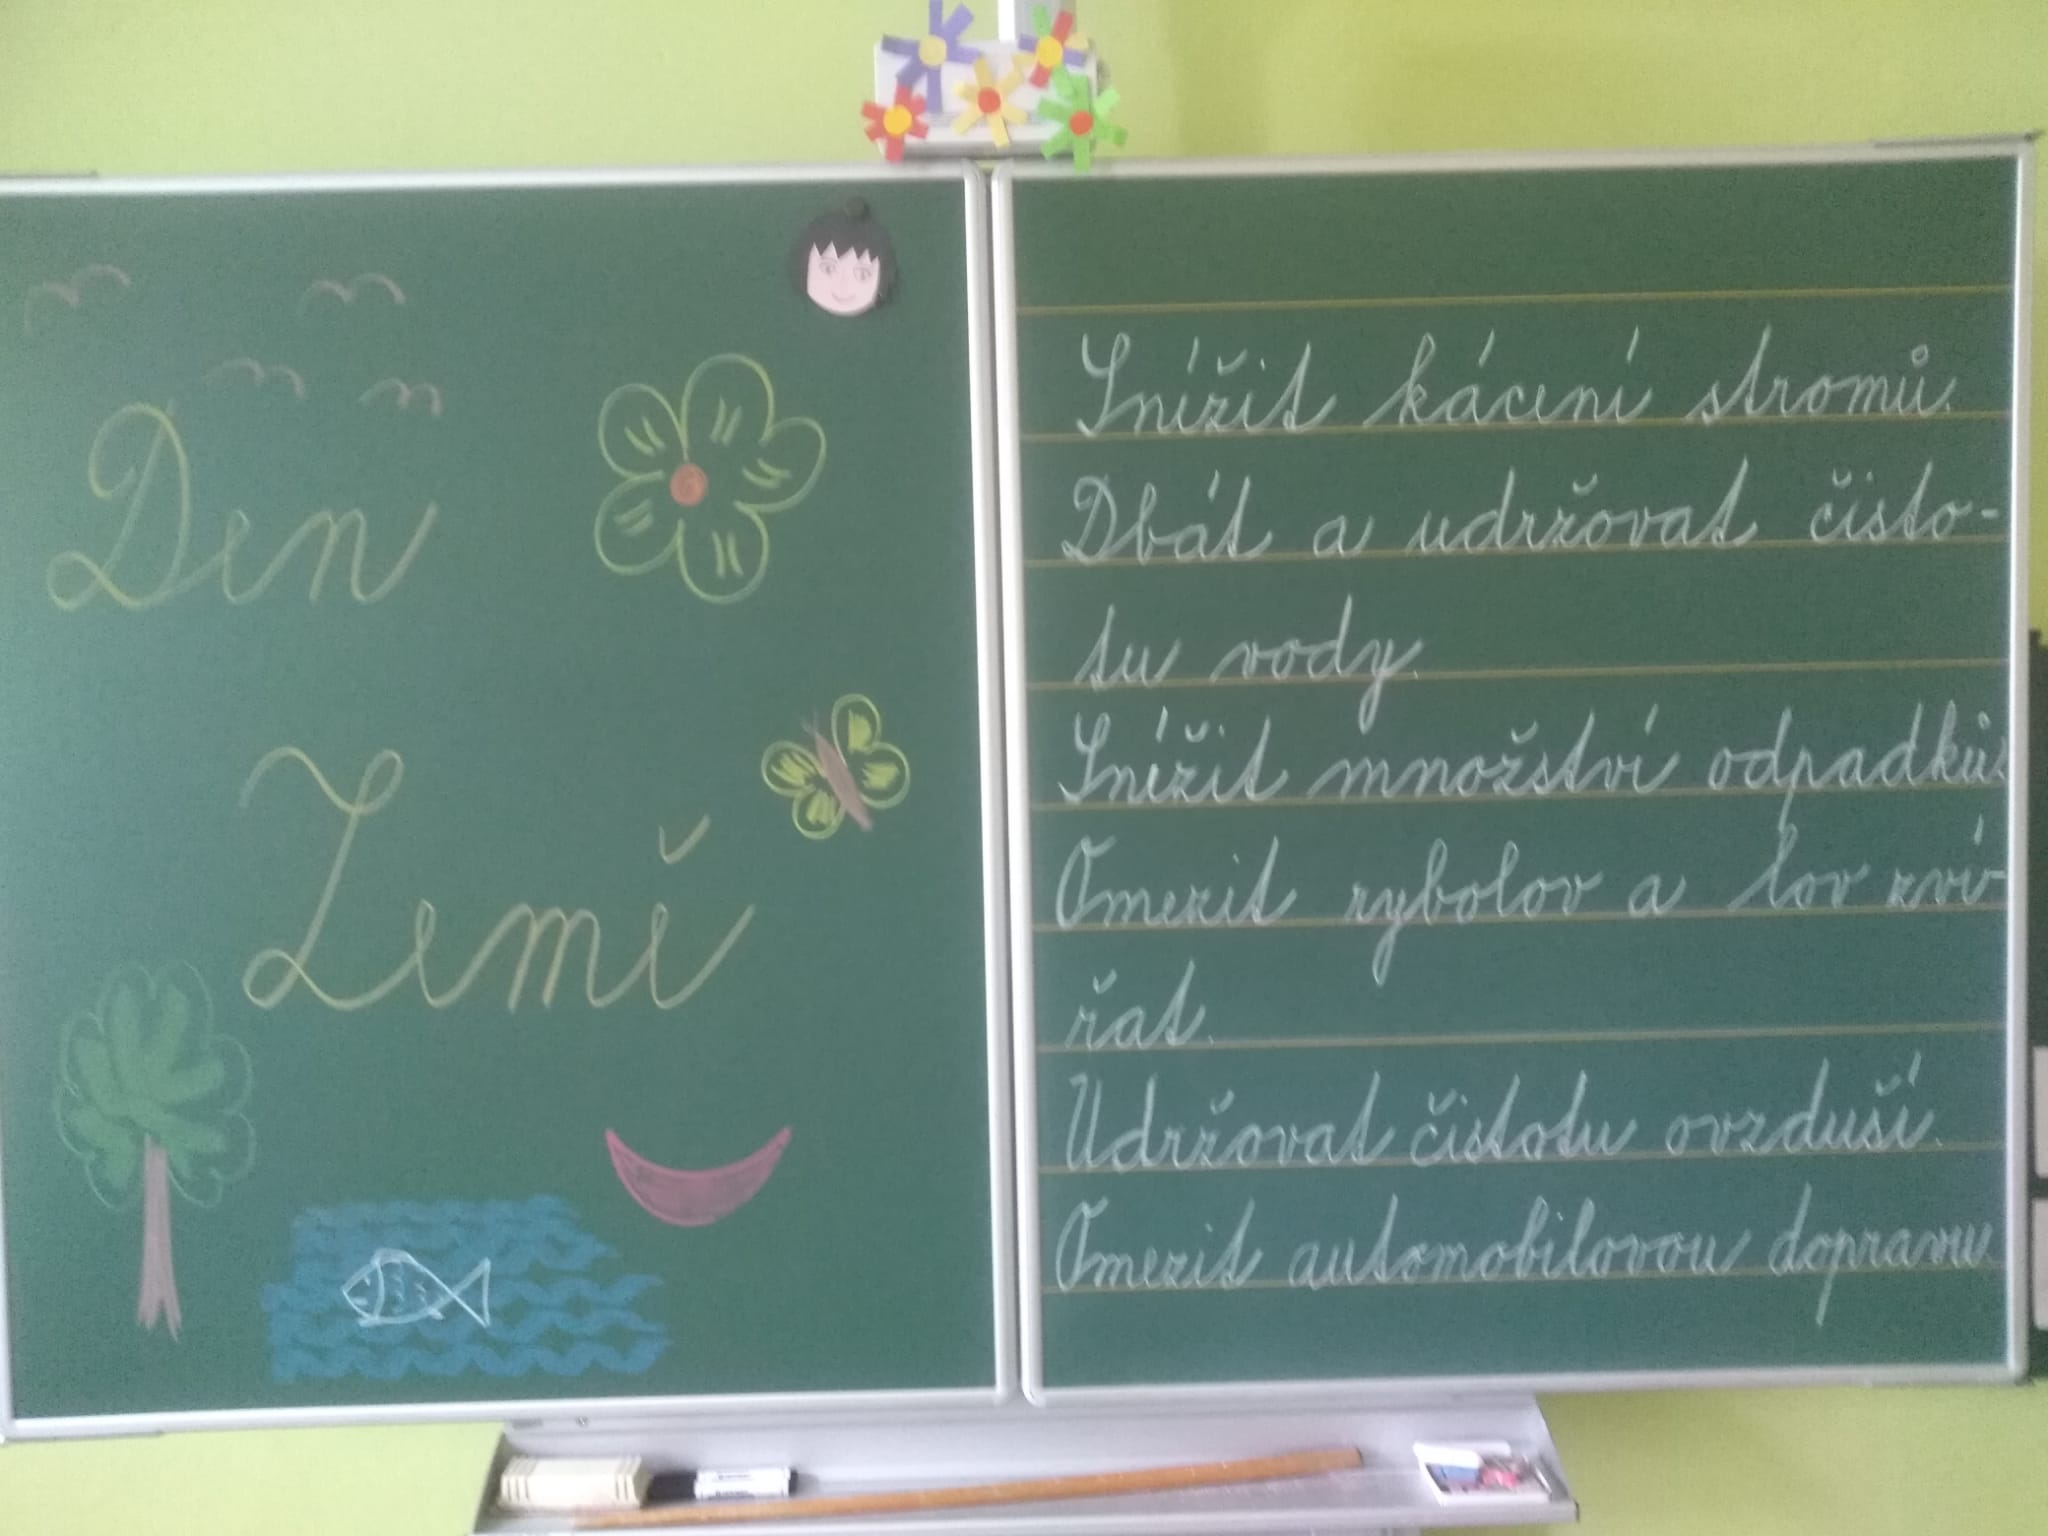 Den
Země
Snížit kácení stromů.
Dbát a udržovat čisto-
tu vody.
Snížit množství odpadků.
Omezit rybolov a lov zví-
řat.
Udržovat čistotu ovzduší.
Omezit automobilovou dopravu